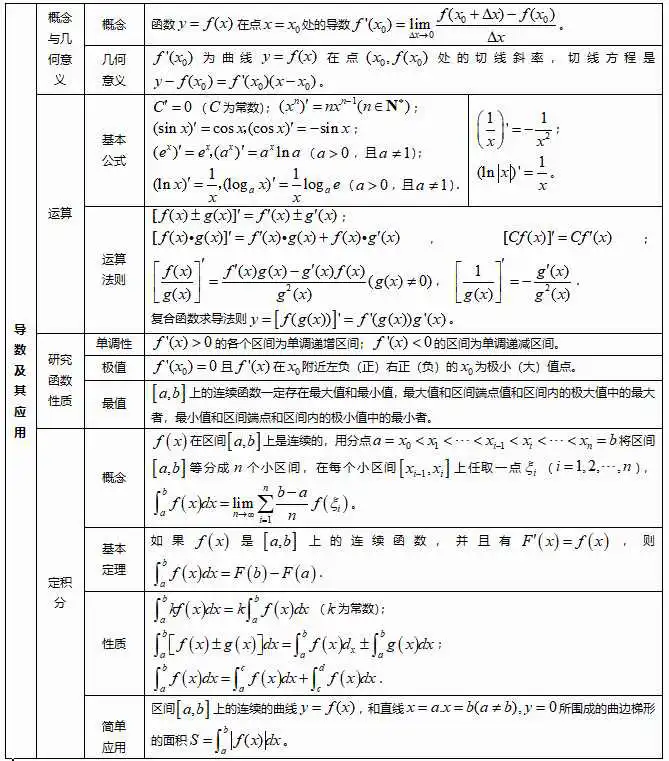 导数及其应用
概念与几何意义
概念
函数 y=f(x) 在点 x=x₀ 处的导数 f'(x₀)=lim_{Δx→0} (f(x₀+Δx)−f(x₀))/Δx。
几何意义
f'(x₀) 为曲线 y=f(x) 在点 (x₀,f(x₀) 处的切线斜率，切线方程是
y−f(x₀)=f'(x₀)(x−x₀)。
运算
基本公式
C'=0（C 为常数）；(xⁿ)'=nxⁿ⁻¹(n∈N*)；
(sin x)'=cos x,(cos x)'=−sin x；
(eˣ)'=eˣ,(aˣ)'=aˣ ln a（a>0，且 a≠1）；
(ln x)'=1/x,(logₐ x)'=1/x logₐ e（a>0，且 a≠1）．
(1/x)'=−1/x²；
(ln|x|)'=1/x。
运算法则
[f(x)±g(x)]'=f'(x)±g'(x)；
[f(x)•g(x)]'=f'(x)•g(x)+f(x)•g'(x)，[Cf(x)]'=Cf'(x)；
[f(x)/g(x)]'=(f'(x)g(x)−g'(x)f(x))/g²(x) (g(x)≠0)，[1/g(x)]'=−g'(x)/g²(x)．
复合函数求导法则 y=[f(g(x))]'=f'(g(x))g'(x)。
研究函数性质
单调性
f'(x)>0 的各个区间为单调递增区间；f'(x)<0 的区间为单调递减区间。
极值
f'(x₀)=0 且 f'(x) 在 x₀ 附近左负（正）右正（负）的 x₀ 为极小（大）值点。
最值
[a,b] 上的连续函数一定存在最大值和最小值，最大值和区间端点值和区间内的极大值中的最大
者，最小值和区间端点和区间内的极小值中的最小者。
定积分
概念
f(x) 在区间 [a,b] 上是连续的，用分点 a=x₀<x₁<⋯<xᵢ₋₁<xᵢ<⋯<xₙ=b 将区间
[a,b] 等分成 n 个小区间，在每个小区间 [xᵢ₋₁,xᵢ] 上任取一点 ξᵢ（i=1,2,⋯,n），
∫ₐᵇ f(x)dx=lim_{n→∞} ∑_{i=1}^{n} (b−a)/n f(ξᵢ)。
基本定理
如果 f(x) 是 [a,b] 上的连续函数，并且有 F'(x)=f(x)，则
∫ₐᵇ f(x)dx=F(b)−F(a)．
性质
∫ₐᵇ kf(x)dx=k∫ₐᵇ f(x)dx（k 为常数）；
∫ₐᵇ [f(x)±g(x)]dx=∫ₐᵇ f(x)dₓ±∫ₐᵇ g(x)dx；
∫ₐᵇ f(x)dx=∫ₐᶜ f(x)dx+∫_c^d f(x)dx．
简单应用
区间 [a,b] 上的连续的曲线 y=f(x)，和直线 x=a.x=b(a≠b),y=0 所围成的曲边梯形
的面积 S=∫ₐᵇ |f(x)|dx。